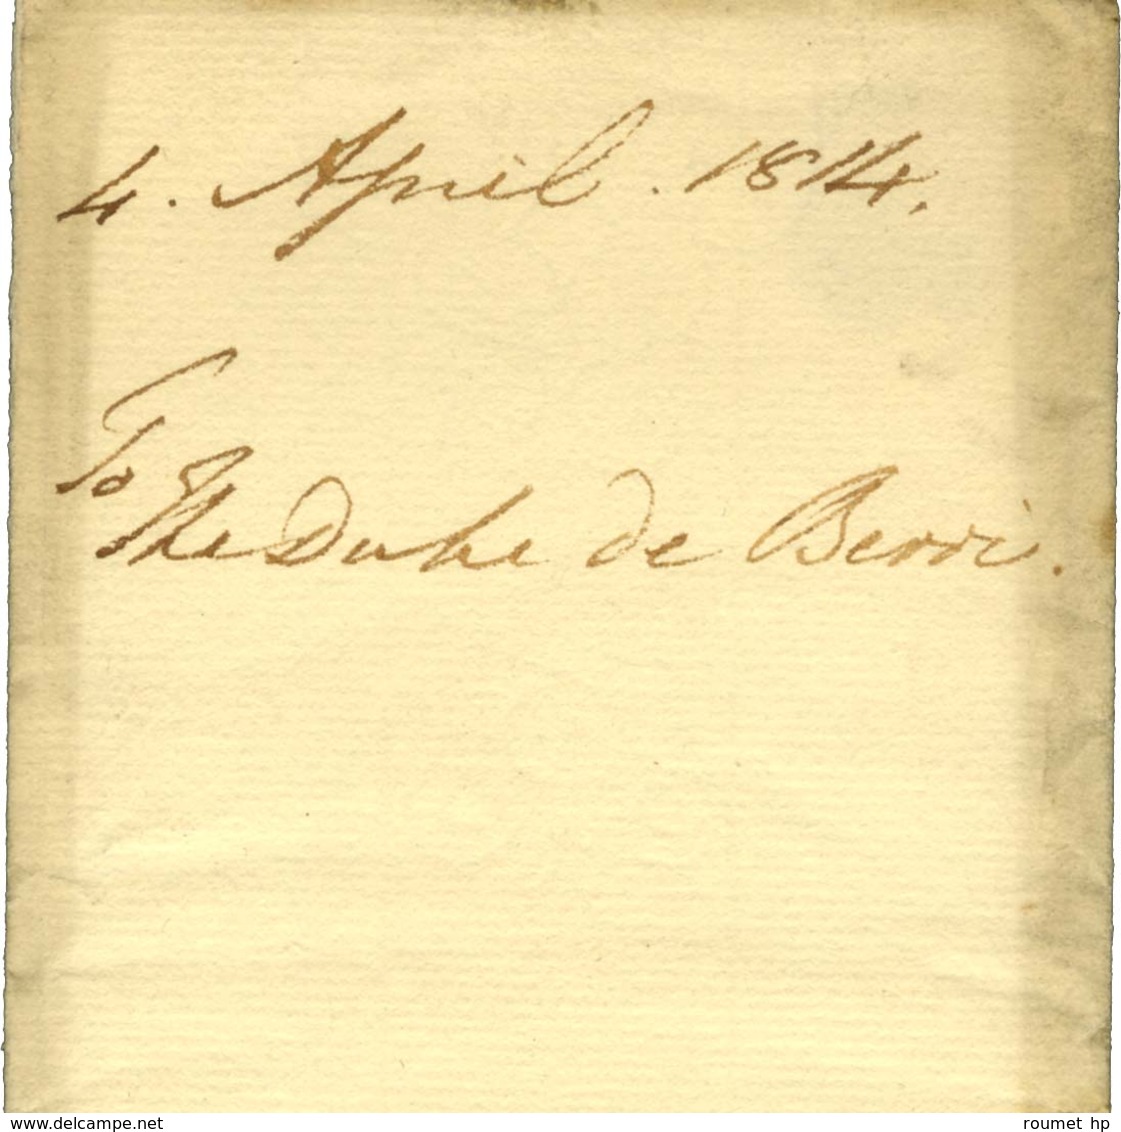 4. April. 1814.
To
The Duke de Berri.
www.delcampe.net
roumet hp